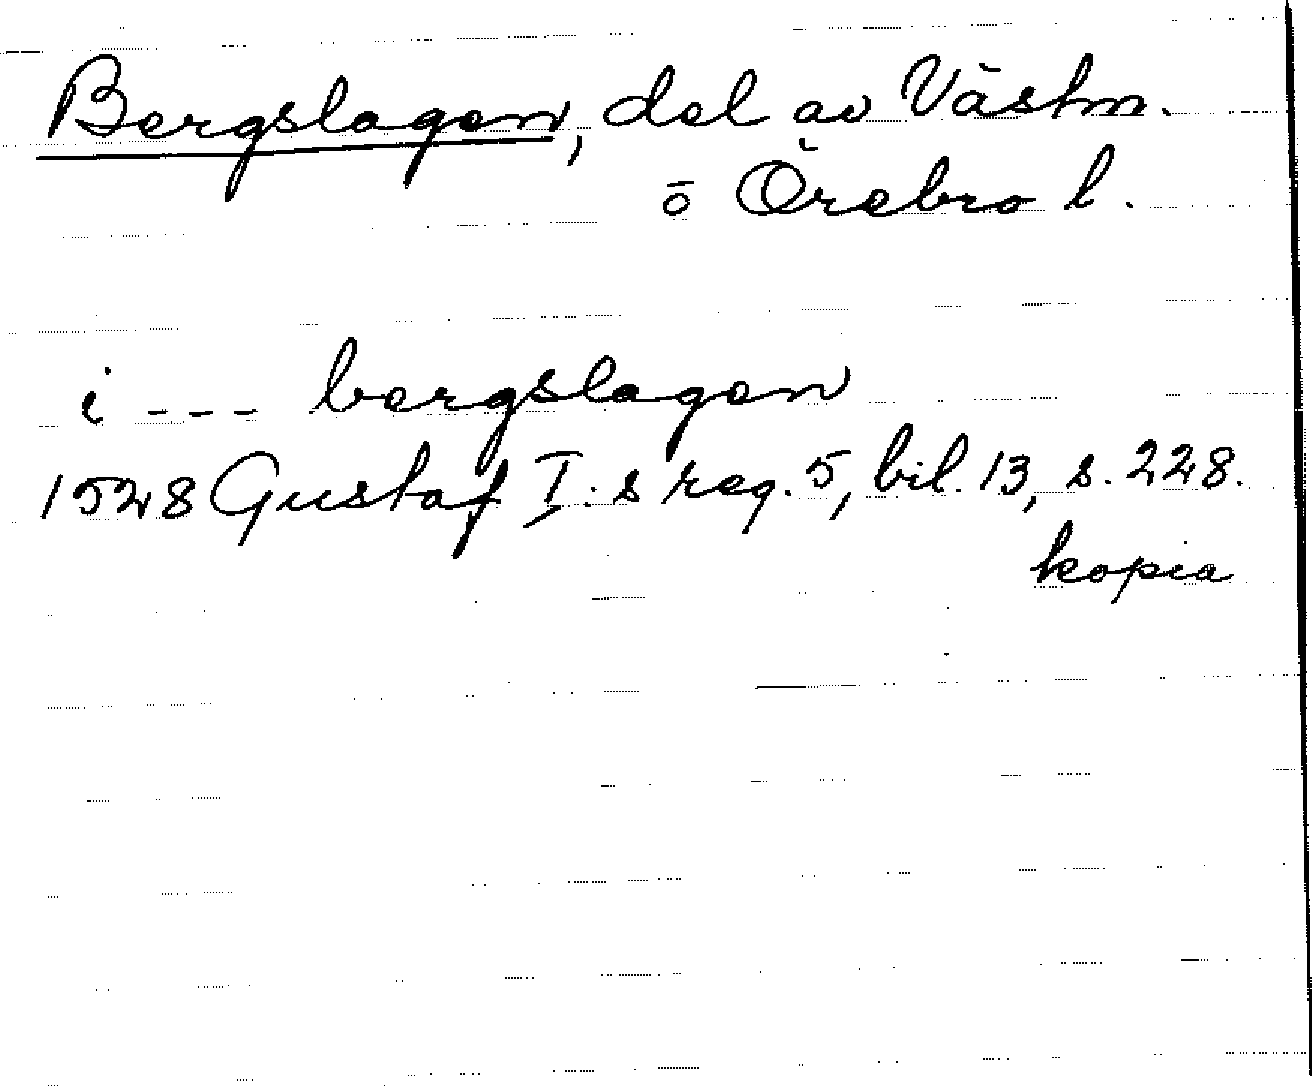 Bergslagen, del av Västm.
ō Örebro l.
i --- bergslagen
1528 Gustaf I:s reg. 5, bil. 13, s. 228.
kopia